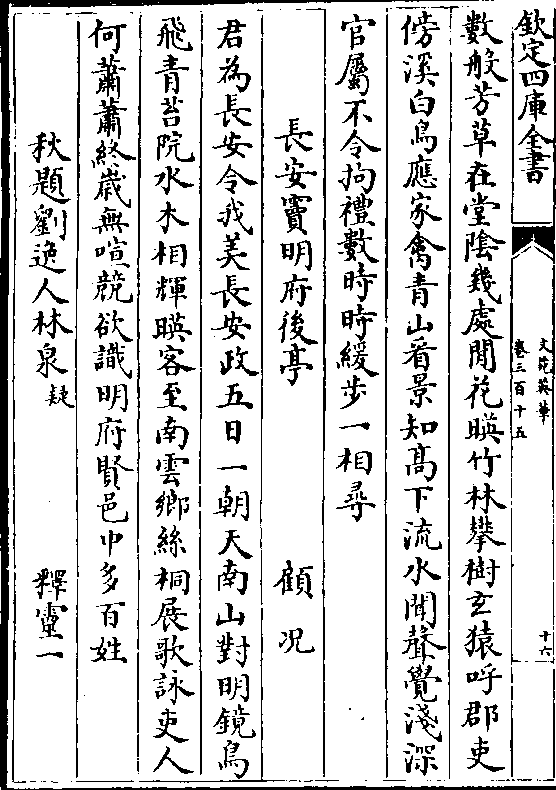 欽定四庫全書
文苑英華
卷三百十五
十六
數般芳草在堂陰幾處閒花暎竹林攀樹玄猿呼郡吏
傍溪白鳥應家禽青山看景知髙下流水聞聲覺淺深
官屬不令拘禮數時時緩步一相尋
長安竇明府後亭 顧况
君為長安令我美長安政五日一朝天南山對明鏡鳥
飛青苔院水木相輝暎客至南雲鄉絲桐展歌詠吏人
何蕭蕭終歲無喧競欲識明府賢邑中多百姓
秋題劉逸人林泉疑 釋靈一